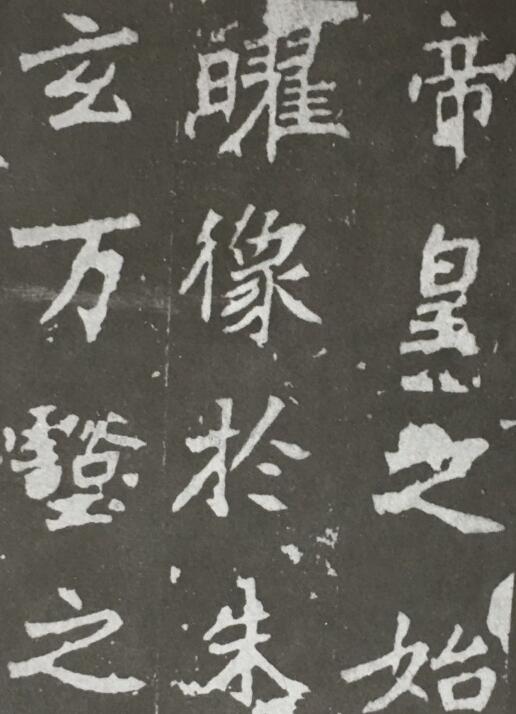 帝皇之始
曜像於朱
玄万壑之